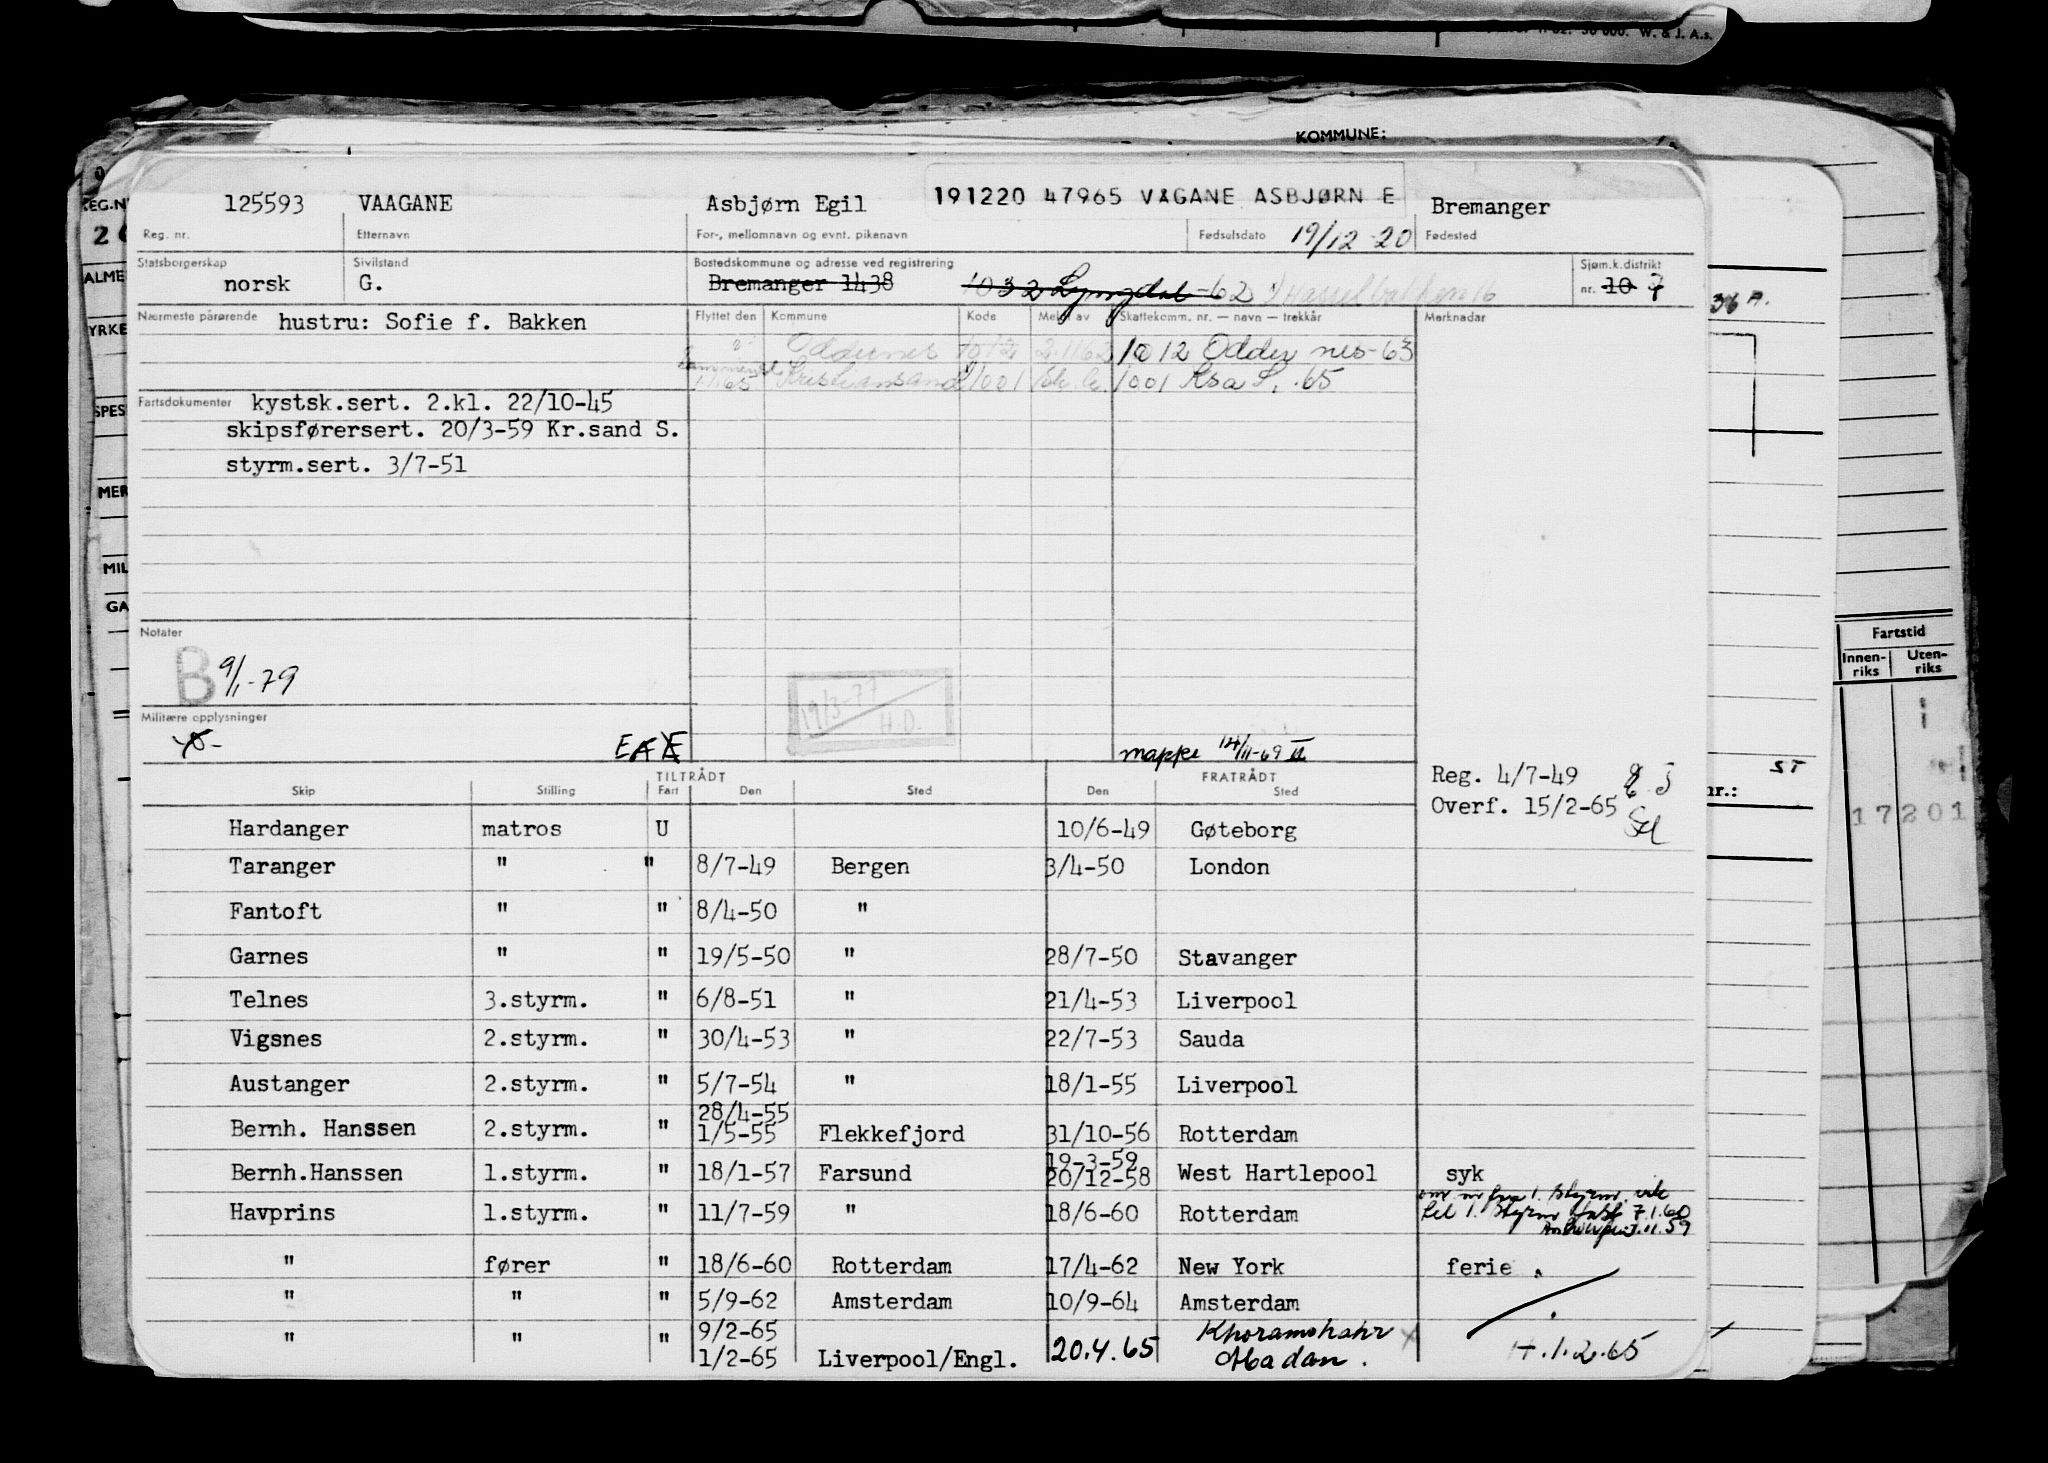 1-62. 30 000. W. & J. A.s.
KOMMUNE:
125593 VAAGANE Asbjørn Egil 191220 47965 VÅGANE ASBJØRN E Bremanger
Reg. nr. Etternavn For-, mellomnavn og evnt. pikenavn Fødselsdato 19/12-20 Fødested
Statsborgerskap Sivilstand Bostedskommune og adresse ved registrering Sjøm.k.distrikt
norsk G. Bremanger 1438 1032 Lyngdal -62 nr. 10 7
Nærmeste pårørende hustru: Sofie f. Bakken Flyttet den Kommune Kode Meldt av Skattekomm. nr. — navn — trekkår Merknader
Oddernes 1012 1012 Oddernes-63
1.1.65 Kristiansand 1001 1001 Ksa S. .65
Fartsdokumenter kystsk.sert. 2.kl. 22/10-45
skipsførersert. 20/3-59 Kr.sand S.
styrm.sert. 3/7-51
Notater
B 9/1-79
19/3-77
H.D.
Militære opplysninger
mappe 14/11-69
TILTRÅDT FRATRÅDT
Skip Stilling Fart Den Sted Den Sted
Reg. 4/7-49
Overf. 15/2-65
Hardanger matros U 10/6-49 Gøteborg
Taranger " " 8/7-49 Bergen 3/4-50 London
Fantoft " " 8/4-50 "
Garnes " " 19/5-50 " 28/7-50 Stavanger
Telnes 3.styrm. " 6/8-51 " 21/4-53 Liverpool
Vigsnes 2.styrm. " 30/4-53 " 22/7-53 Sauda
Austanger 2.styrm. " 5/7-54 " 18/1-55 Liverpool
28/4-55
Bernh. Hanssen 2.styrm. " 1/5-55 Flekkefjord 31/10-56 Rotterdam
19-3-59
Bernh.Hanssen 1.styrm. " 18/1-57 Farsund 20/12-58 West Hartlepool syk
Havprins 1.styrm. " 11/7-59 " 18/6-60 Rotterdam
til 1. styrm 7.1.60
Antwerpen 11.59
" fører " 18/6-60 Rotterdam 17/4-62 New York ferie
" " " 5/9-62 Amsterdam 10/9-64 Amsterdam
9/2-65
" " " 1/2-65 Liverpool/Engl. 20.4.65 Khoramshahr
Abadan. H.1.2.65
Fartstid
Innen-riks Uten-riks
ST
nr.:
17201
36 A.